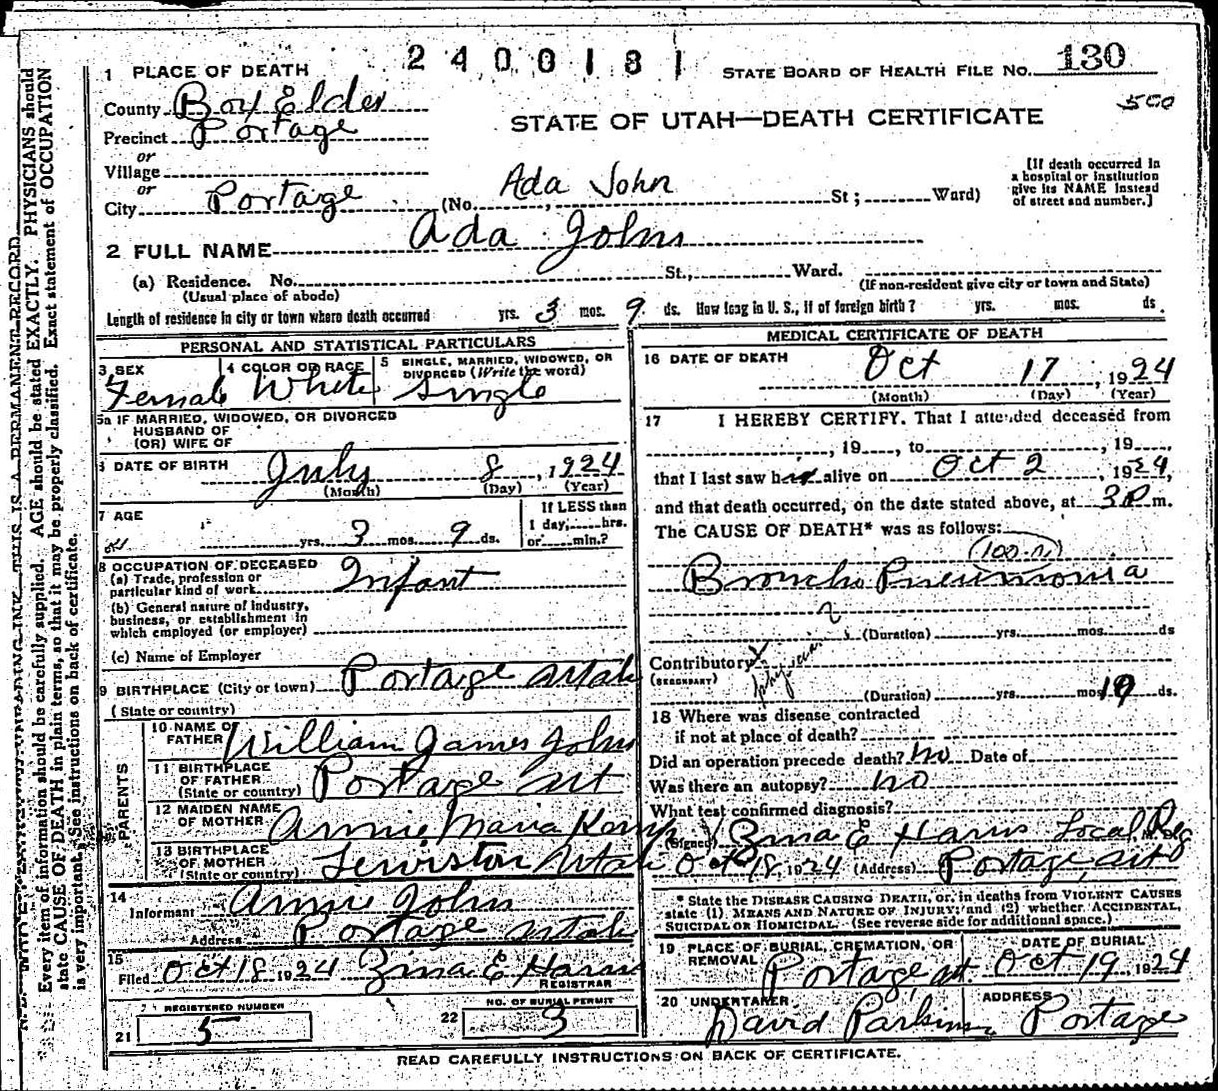 2400181
1 PLACE OF DEATH
STATE BOARD OF HEALTH FILE NO. 130
County Box Elder
500
Precinct Portage
STATE OF UTAH—DEATH CERTIFICATE
or
Village
or
City Portage (No. Ada John St; Ward)
[If death occurred in
a hospital or institution
give its NAME instead
of street and number.]
2 FULL NAME Ada John
(a) Residence. No. St., Ward.
(Usual place of abode) (If non-resident give city or town and State)
Length of residence in city or town where death occurred yrs. 3 mos. 9 ds. How long in U. S., if of foreign birth? yrs. mos. ds.
PERSONAL AND STATISTICAL PARTICULARS
3 SEX Female
4 COLOR OR RACE White
5 SINGLE, MARRIED, WIDOWED, OR
DIVORCED (Write the word) Single
5a IF MARRIED, WIDOWED, OR DIVORCED
HUSBAND OF
(OR) WIFE OF
6 DATE OF BIRTH July 8, 1924
(Month) (Day) (Year)
7 AGE yrs. 3 mos. 9 ds.
If LESS than
1 day, hrs.
or min.?
8 OCCUPATION OF DECEASED
(a) Trade, profession or
particular kind of work Infant
(b) General nature of industry,
business, or establishment in
which employed (or employer)
(c) Name of Employer
9 BIRTHPLACE (City or town) Portage Utah
(State or country)
PARENTS
10 NAME OF
FATHER William James John
11 BIRTHPLACE
OF FATHER
(State or country) Portage Ut
12 MAIDEN NAME
OF MOTHER Annie Maria Kemp
13 BIRTHPLACE
OF MOTHER
(State or country) Lewiston Utah
14
Informant Annie John
Address Portage Utah
15
Filed Oct 18 1924 Zina E Harris
REGISTRAR
REGISTERED NUMBER
21 5
NO. OF BURIAL PERMIT
22 3
MEDICAL CERTIFICATE OF DEATH
16 DATE OF DEATH Oct 17, 1924
(Month) (Day) (Year)
17 I HEREBY CERTIFY. That I attended deceased from
, 19 , to , 19 ,
that I last saw her alive on Oct 2, 1924,
and that death occurred, on the date stated above, at 3 P m.
The CAUSE OF DEATH* was as follows:
Broncho Pneumonia
(Duration) yrs. mos. ds
Contributory
(SECONDARY) physician
(Duration) yrs. mos. 19 ds.
18 Where was disease contracted
if not at place of death?
Did an operation precede death? No Date of
Was there an autopsy? no
What test confirmed diagnosis?
(Signed) Zina E Harris Local Reg
Oct 18, 1924 (Address) Portage, Ut
* State the DISEASE CAUSING DEATH, or, in deaths from VIOLENT CAUSES
state (1) MEANS AND NATURE OF INJURY; and (2) whether ACCIDENTAL,
SUICIDAL OR HOMICIDAL. (See reverse side for additional space.)
19 PLACE OF BURIAL, CREMATION, OR
REMOVAL Portage, Ut.
DATE OF BURIAL
Oct 19, 1924
20 UNDERTAKER David Parkinson
ADDRESS Portage
READ CAREFULLY INSTRUCTIONS ON BACK OF CERTIFICATE.
THIS IS A PERMANENT RECORD
Every item of information should be carefully supplied. AGE should be stated EXACTLY. PHYSICIANS should
state CAUSE OF DEATH in plain terms, so that it may be properly classified. Exact statement of OCCUPATION
is very important. See instructions on back of certificate.